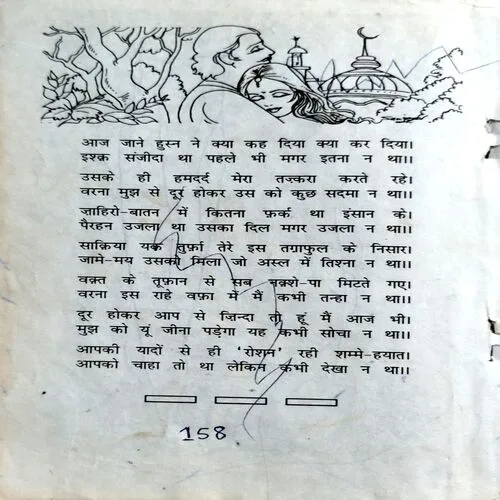 आज जाने हुस्न ने क्या कह दिया क्या कर दिया।
इश्क़ संजीदा था पहले भी मगर इतना न था।।
उसके ही हमदर्द मेरा तज़्करा करते रहे।
वरना मुझ से दूर होकर उस को कुछ सदमा न था।।
ज़ाहिरो-बातन में कितना फ़र्क़ था इंसान के।
पैरहन उजला था उसका दिल मगर उजला न था।।
साक़िया यक तुर्फ़ा तेरे इस तग़ाफुल के निसार।
जामे-मय उसको मिला जो अस्ल में तिश्ना न था।।
वक़्त के तूफ़ान से सब नक़्शे-पा मिटते गए।
वरना इस राहे वफ़ा में मैं कभी तन्हा न था।।
दूर होकर आप से ज़िन्दा तो हूं मैं आज भी।
मुझ को यूं जीना पड़ेगा यह कभी सोचा न था।।
आपकी यादों से ही 'रोशन' रही शम्मे-हयात।
आपको चाहा तो था लेकिन कभी देखा न था।।
158